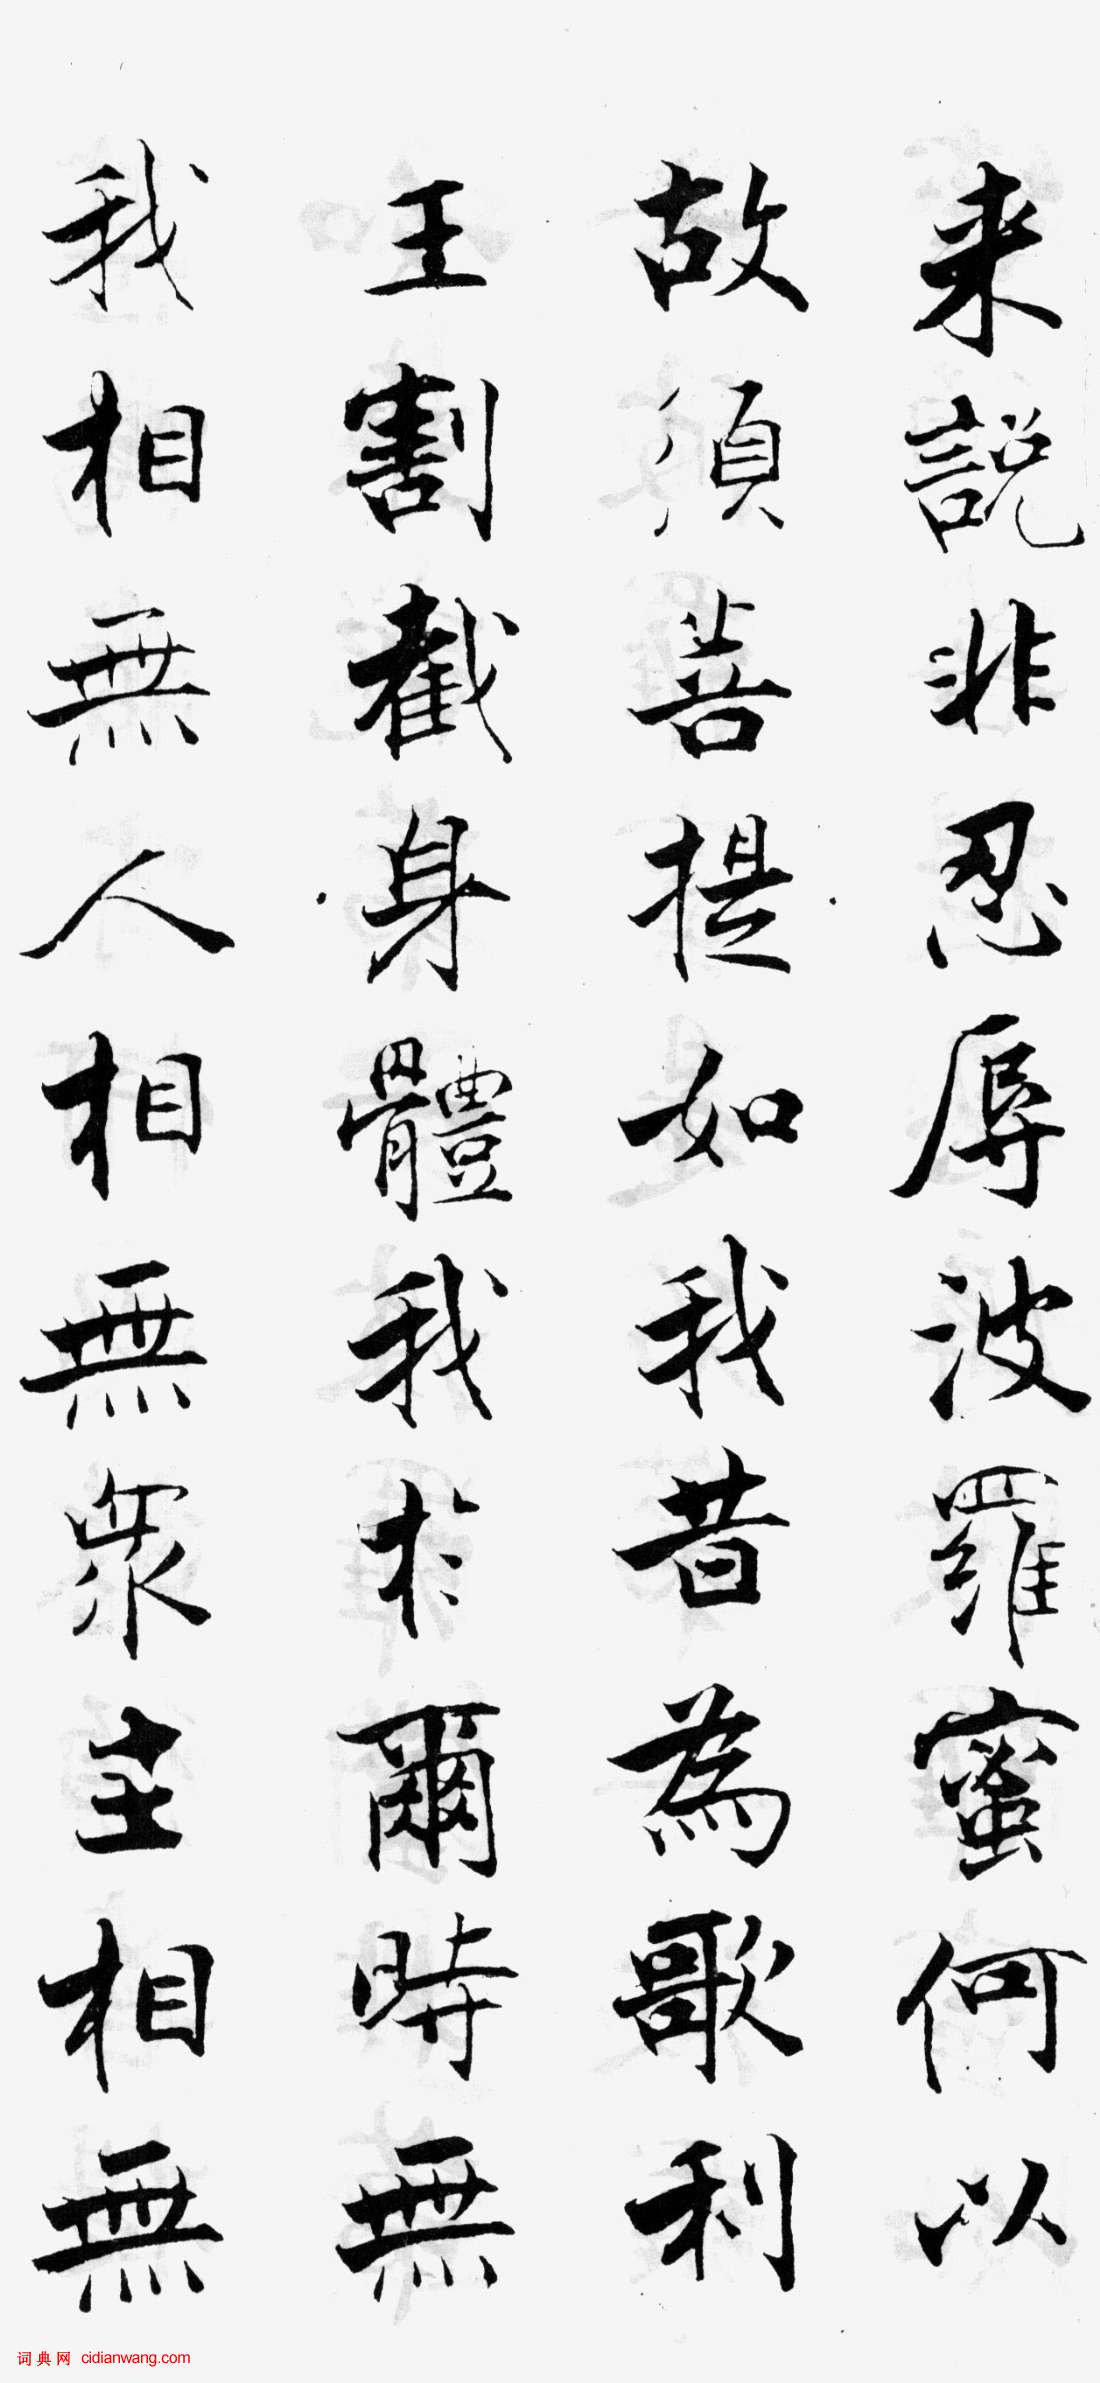 来說非忍辱波羅蜜何以
故須菩提如我昔為歌利
王割截身體我於爾時無
我相無人相無眾生相無
词典网 cidianwang.com